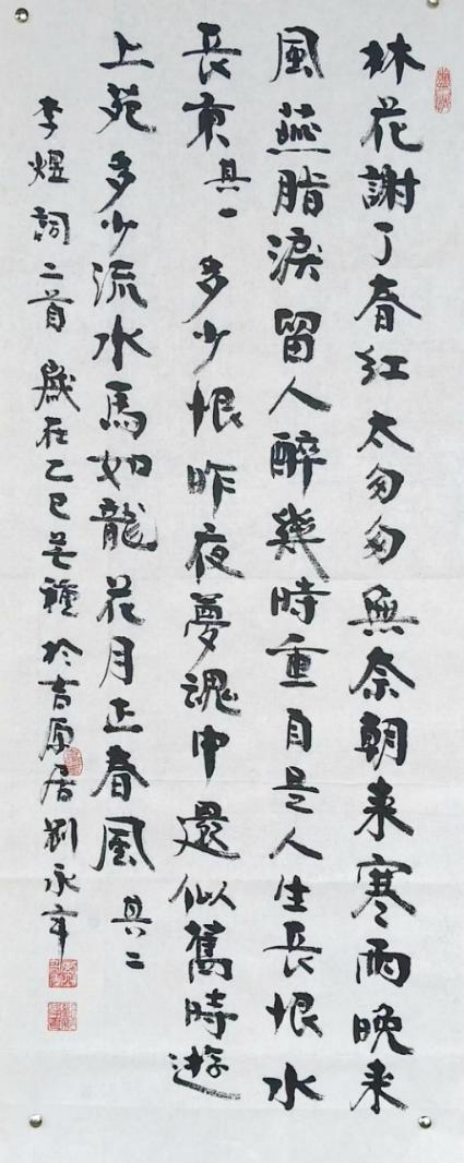 林花謝了春红太匆匆無奈朝来寒雨晚来
風燕脂淚留人醉幾時重自是人生長恨水
長東其一多少恨昨夜夢魂中還似舊時遊
上苑多少流水馬如龍花月正春風其二
李煜詞二首歲在乙巳芒種於吉原居劉永